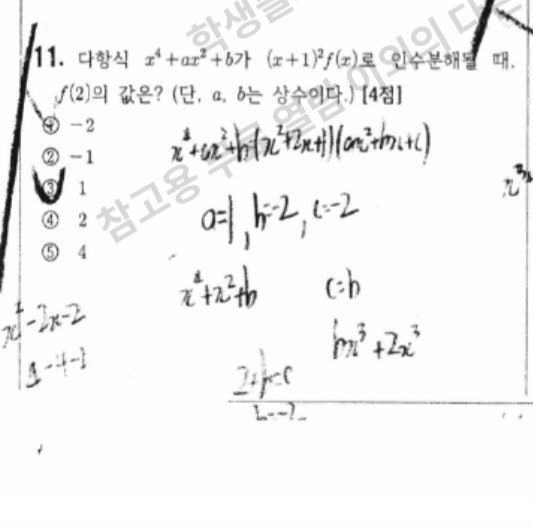 11. 다항식 x⁴+ax²+b가 (x+1)²f(x)로 인수분해될 때,
f(2)의 값은? (단, a, b는 상수이다.) [4점]
① -2
② -1
③ 1
④ 2
⑤ 4
x⁴+ax²+b (x²+2x+1)(ax²+bx+c)
a=1, b=-2, c=-2
x⁴+x²+b
c=b
bx³+2x³
x²-2x-2
참고용